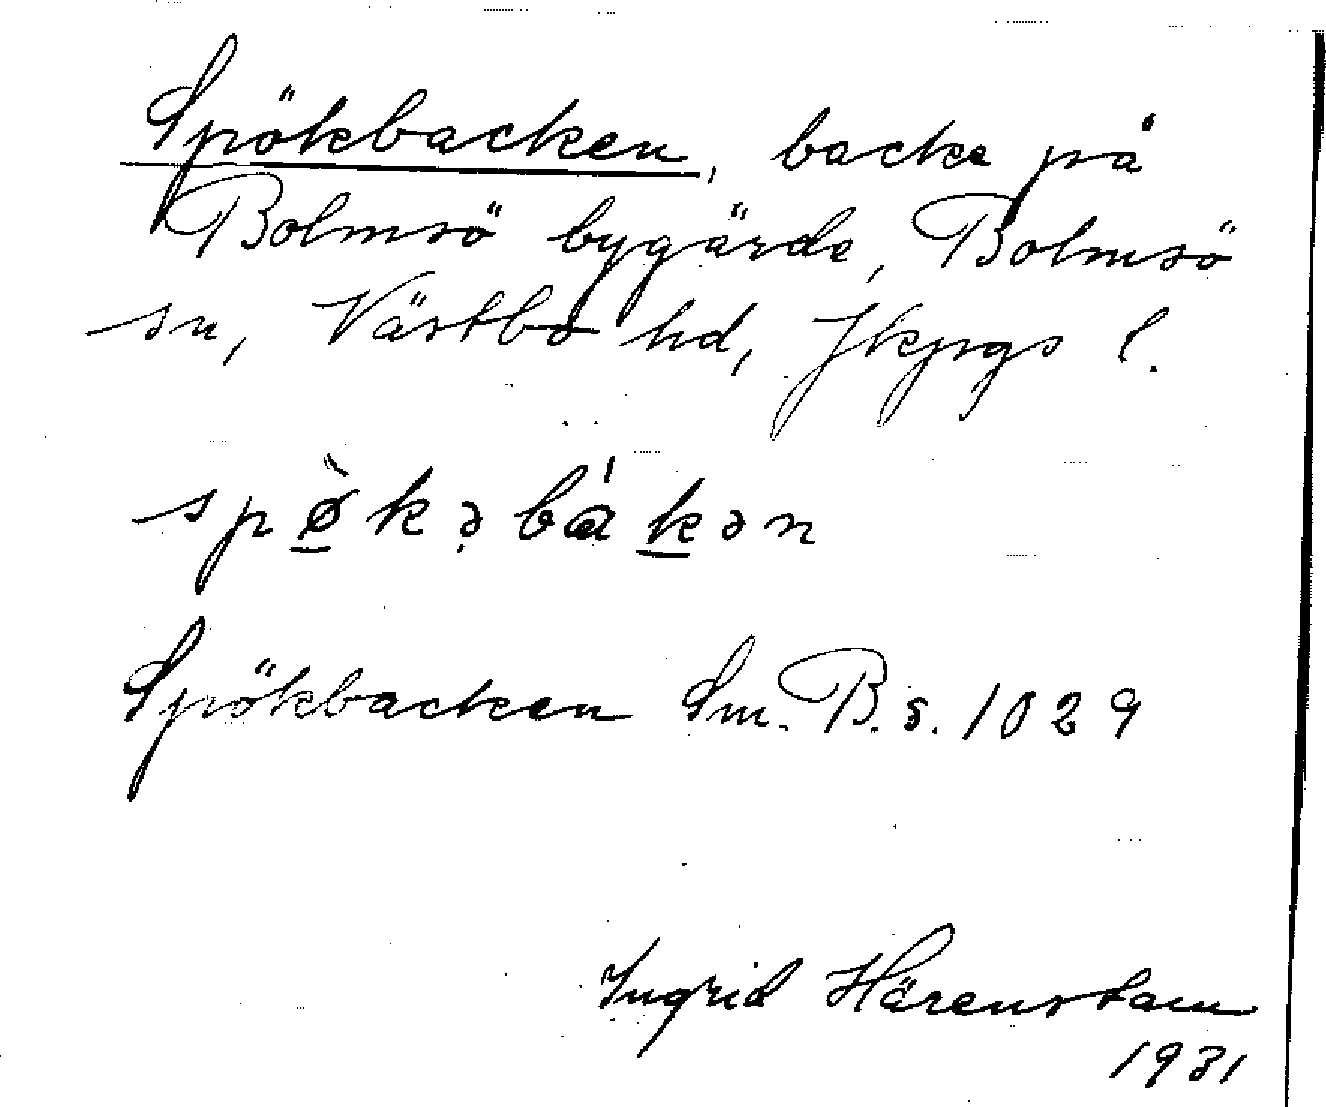 Spökbacken, backe på
Bolmsö bygärde, Bolmsö
sn, Västbo hd, Jkpgs l.
spø̀kəbákən
Spökbacken Sm. B. s. 1029
Ingrid Härenstam
1931